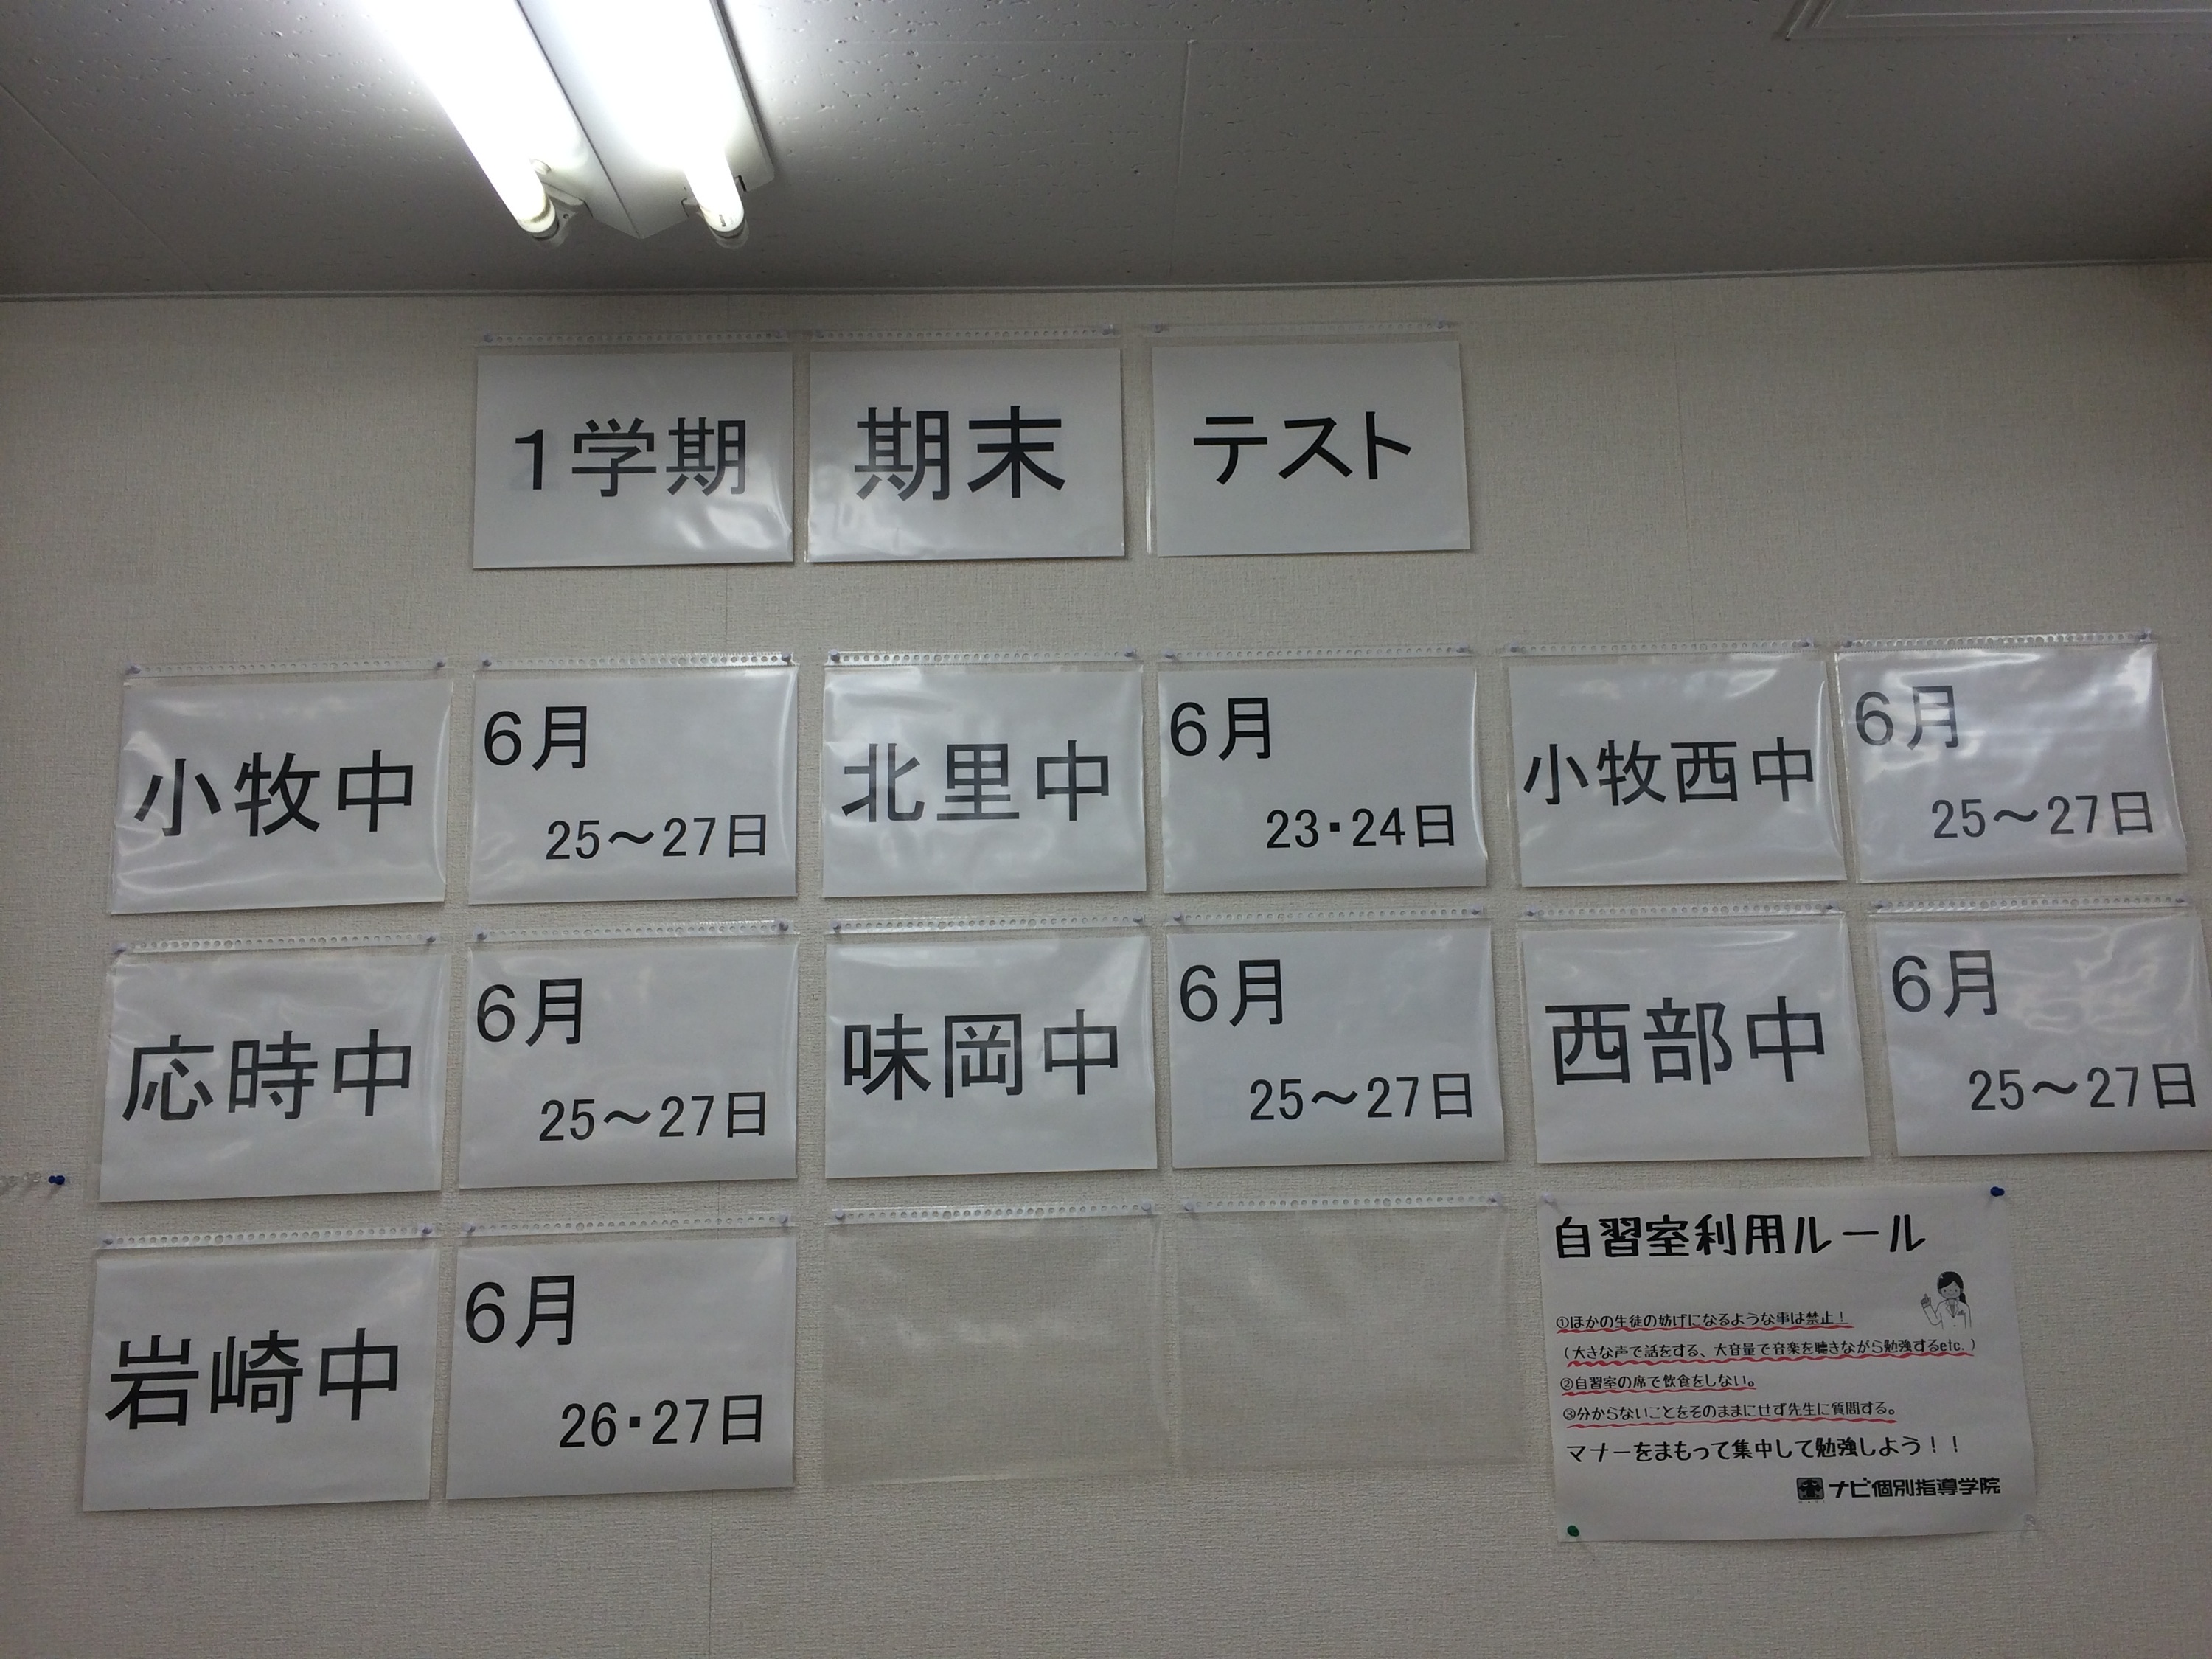 1学期 期末 テスト
小牧中
6月
25～27日
北里中
6月
23・24日
小牧西中
6月
25～27日
応時中
6月
25～27日
味岡中
6月
25～27日
西部中
6月
25～27日
岩崎中
6月
26・27日
自習室利用ルール
①ほかの生徒の妨げになるような事は禁止！
（大きな声で話をする、大音量で音楽を聴きながら勉強するetc.）
②自習室の席で飲食をしない。
③分からないことをそのままにせず先生に質問する。
マナーをまもって集中して勉強しよう！！
ナビ個別指導学院